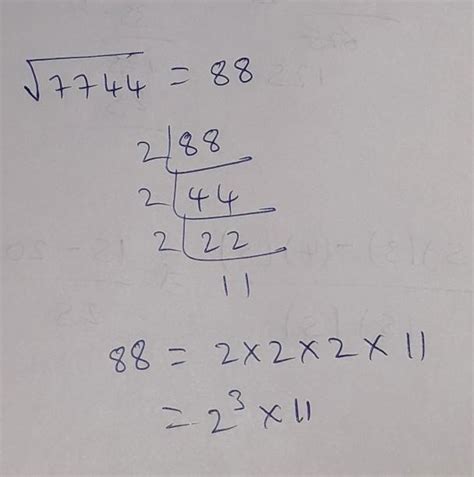 √7744 = 88
2|88
2|44
2|22
11
88 = 2×2×2×11
= 2³×11